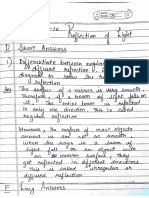 Reflection of Light
D Short Answers
1) Differentiate between regular
and diffused reflection. Draw
diagram to show the
of reflection.
Ans The surface of a mirror is very smooth.
Thus, if a beam of light falls on
it, the entire beam is reflected
in only one direction. This is called
regular reflection.
However, the surface of most objects
around us are not so smooth
when the rays in a beam of
light fall on an object with
an uneven surface, they
get reflected in different direction.
This is called irregular or
diffused reflection.
E Long Answers